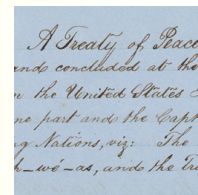 A Treaty of Peace
and concluded at the
the United States
one part and the Capt
Nations, viz: The
h-wé-as, and the Tre